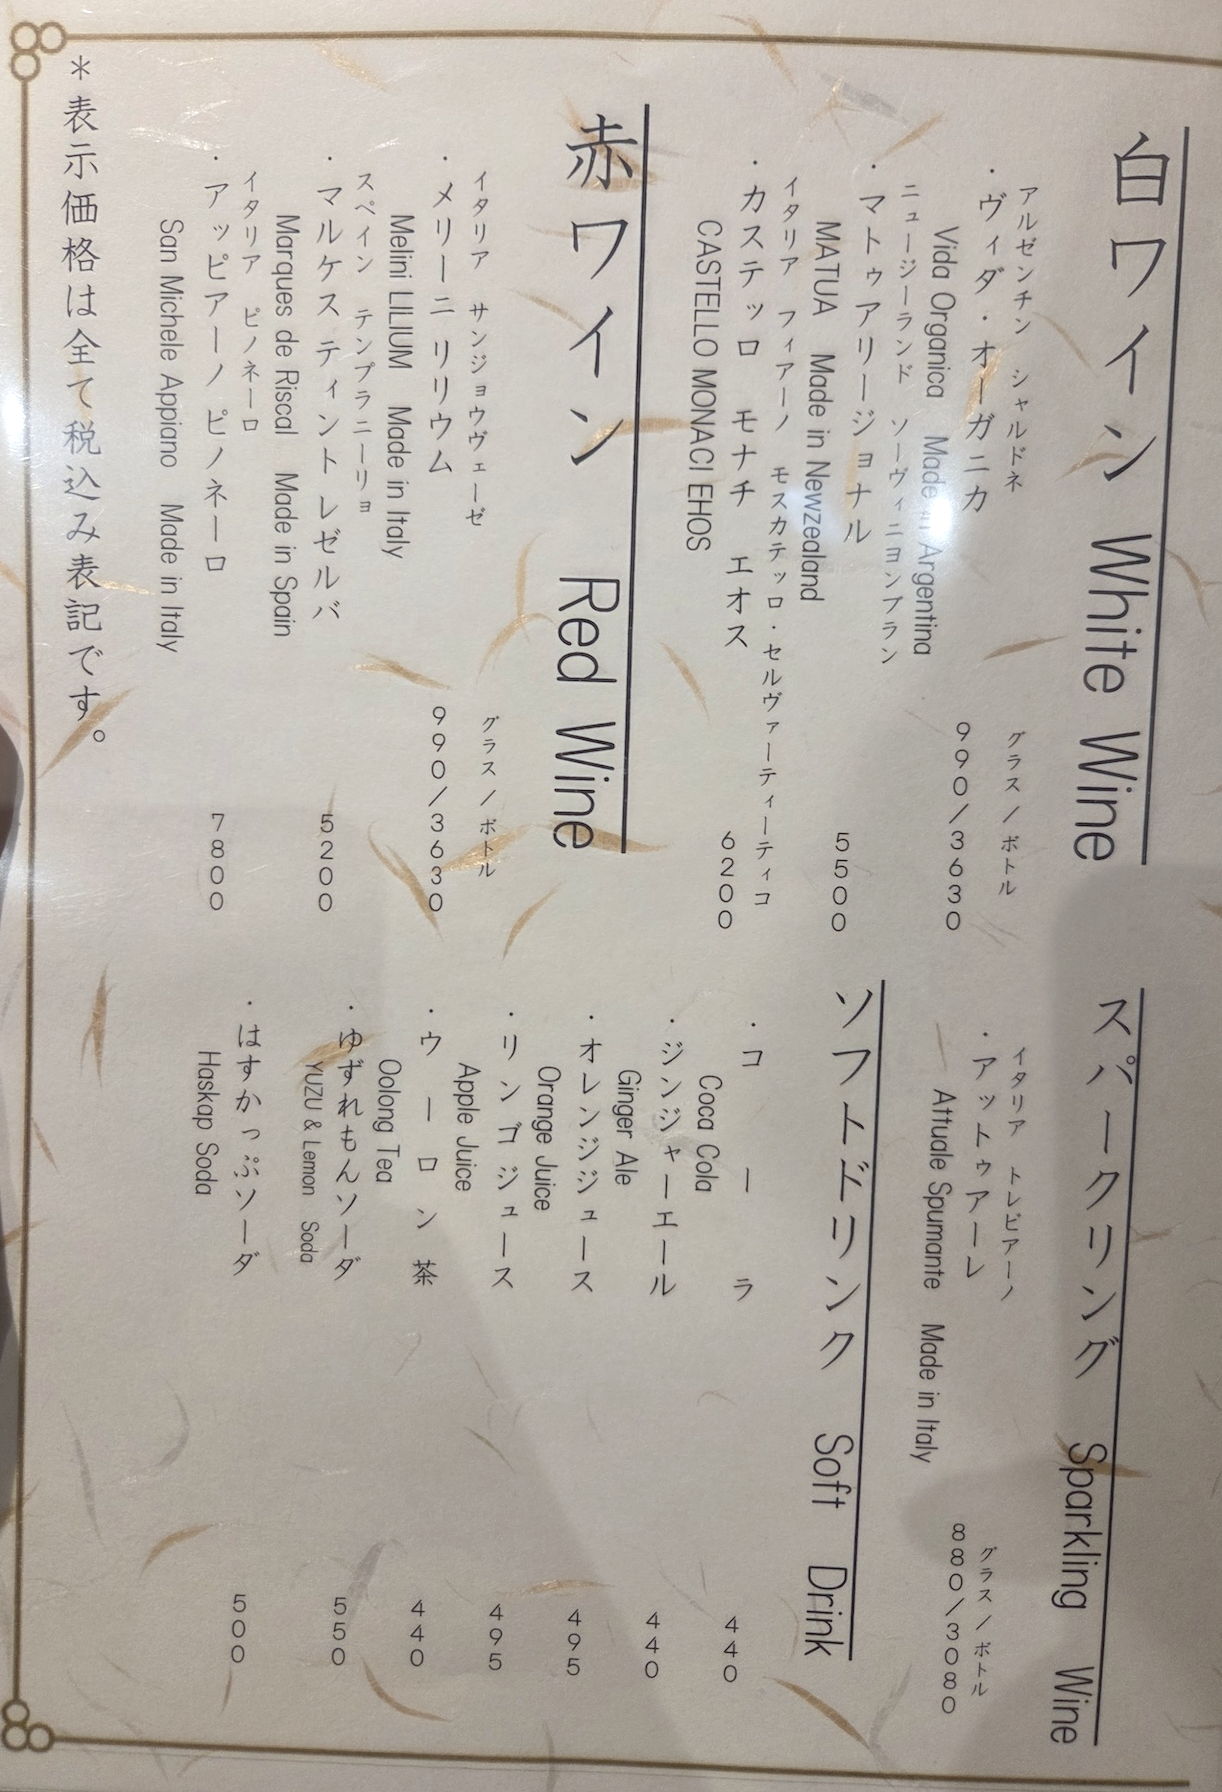 白ワイン White Wine
アルゼンチン シャルドネ グラス/ボトル
・ヴィダ・オーガニカ 990/3630
Vida Organica Made in Argentina
ニュージーランド ソーヴィニヨンブラン
・マトゥアリージョナル 5500
MATUA Made in Newzealand
イタリア フィアーノ モスカテッロ・セルヴァーティーティコ
・カステッロ モナチ エオス 6200
CASTELLO MONACI EHOS
赤ワイン Red Wine
イタリア サンジョウヴェーゼ グラス/ボトル
・メリーニ リリウム 990/3630
Melini LILIUM Made in Italy
スペイン テンプラニーリョ
・マルケス ティント レゼルバ 5200
Marques de Riscal Made in Spain
イタリア ピノネーロ
・アッピアーノ ピノネーロ 7800
San Michele Appiano Made in Italy
*表示価格は全て税込み表記です。
スパークリング Sparkling Wine
イタリア トレビアーノ グラス/ボトル
・アットゥアーレ 880/3080
Attuale Spumante Made in Italy
ソフトドリンク Soft Drink
・コーラ 440
Coca Cola
・ジンジャーエール 440
Ginger Ale
・オレンジジュース 495
Orange Juice
・リンゴジュース 495
Apple Juice
・ウーロン茶 440
Oolong Tea
・ゆずれもんソーダ 550
YUZU & Lemon Soda
・はすかっぷソーダ 500
Haskap Soda